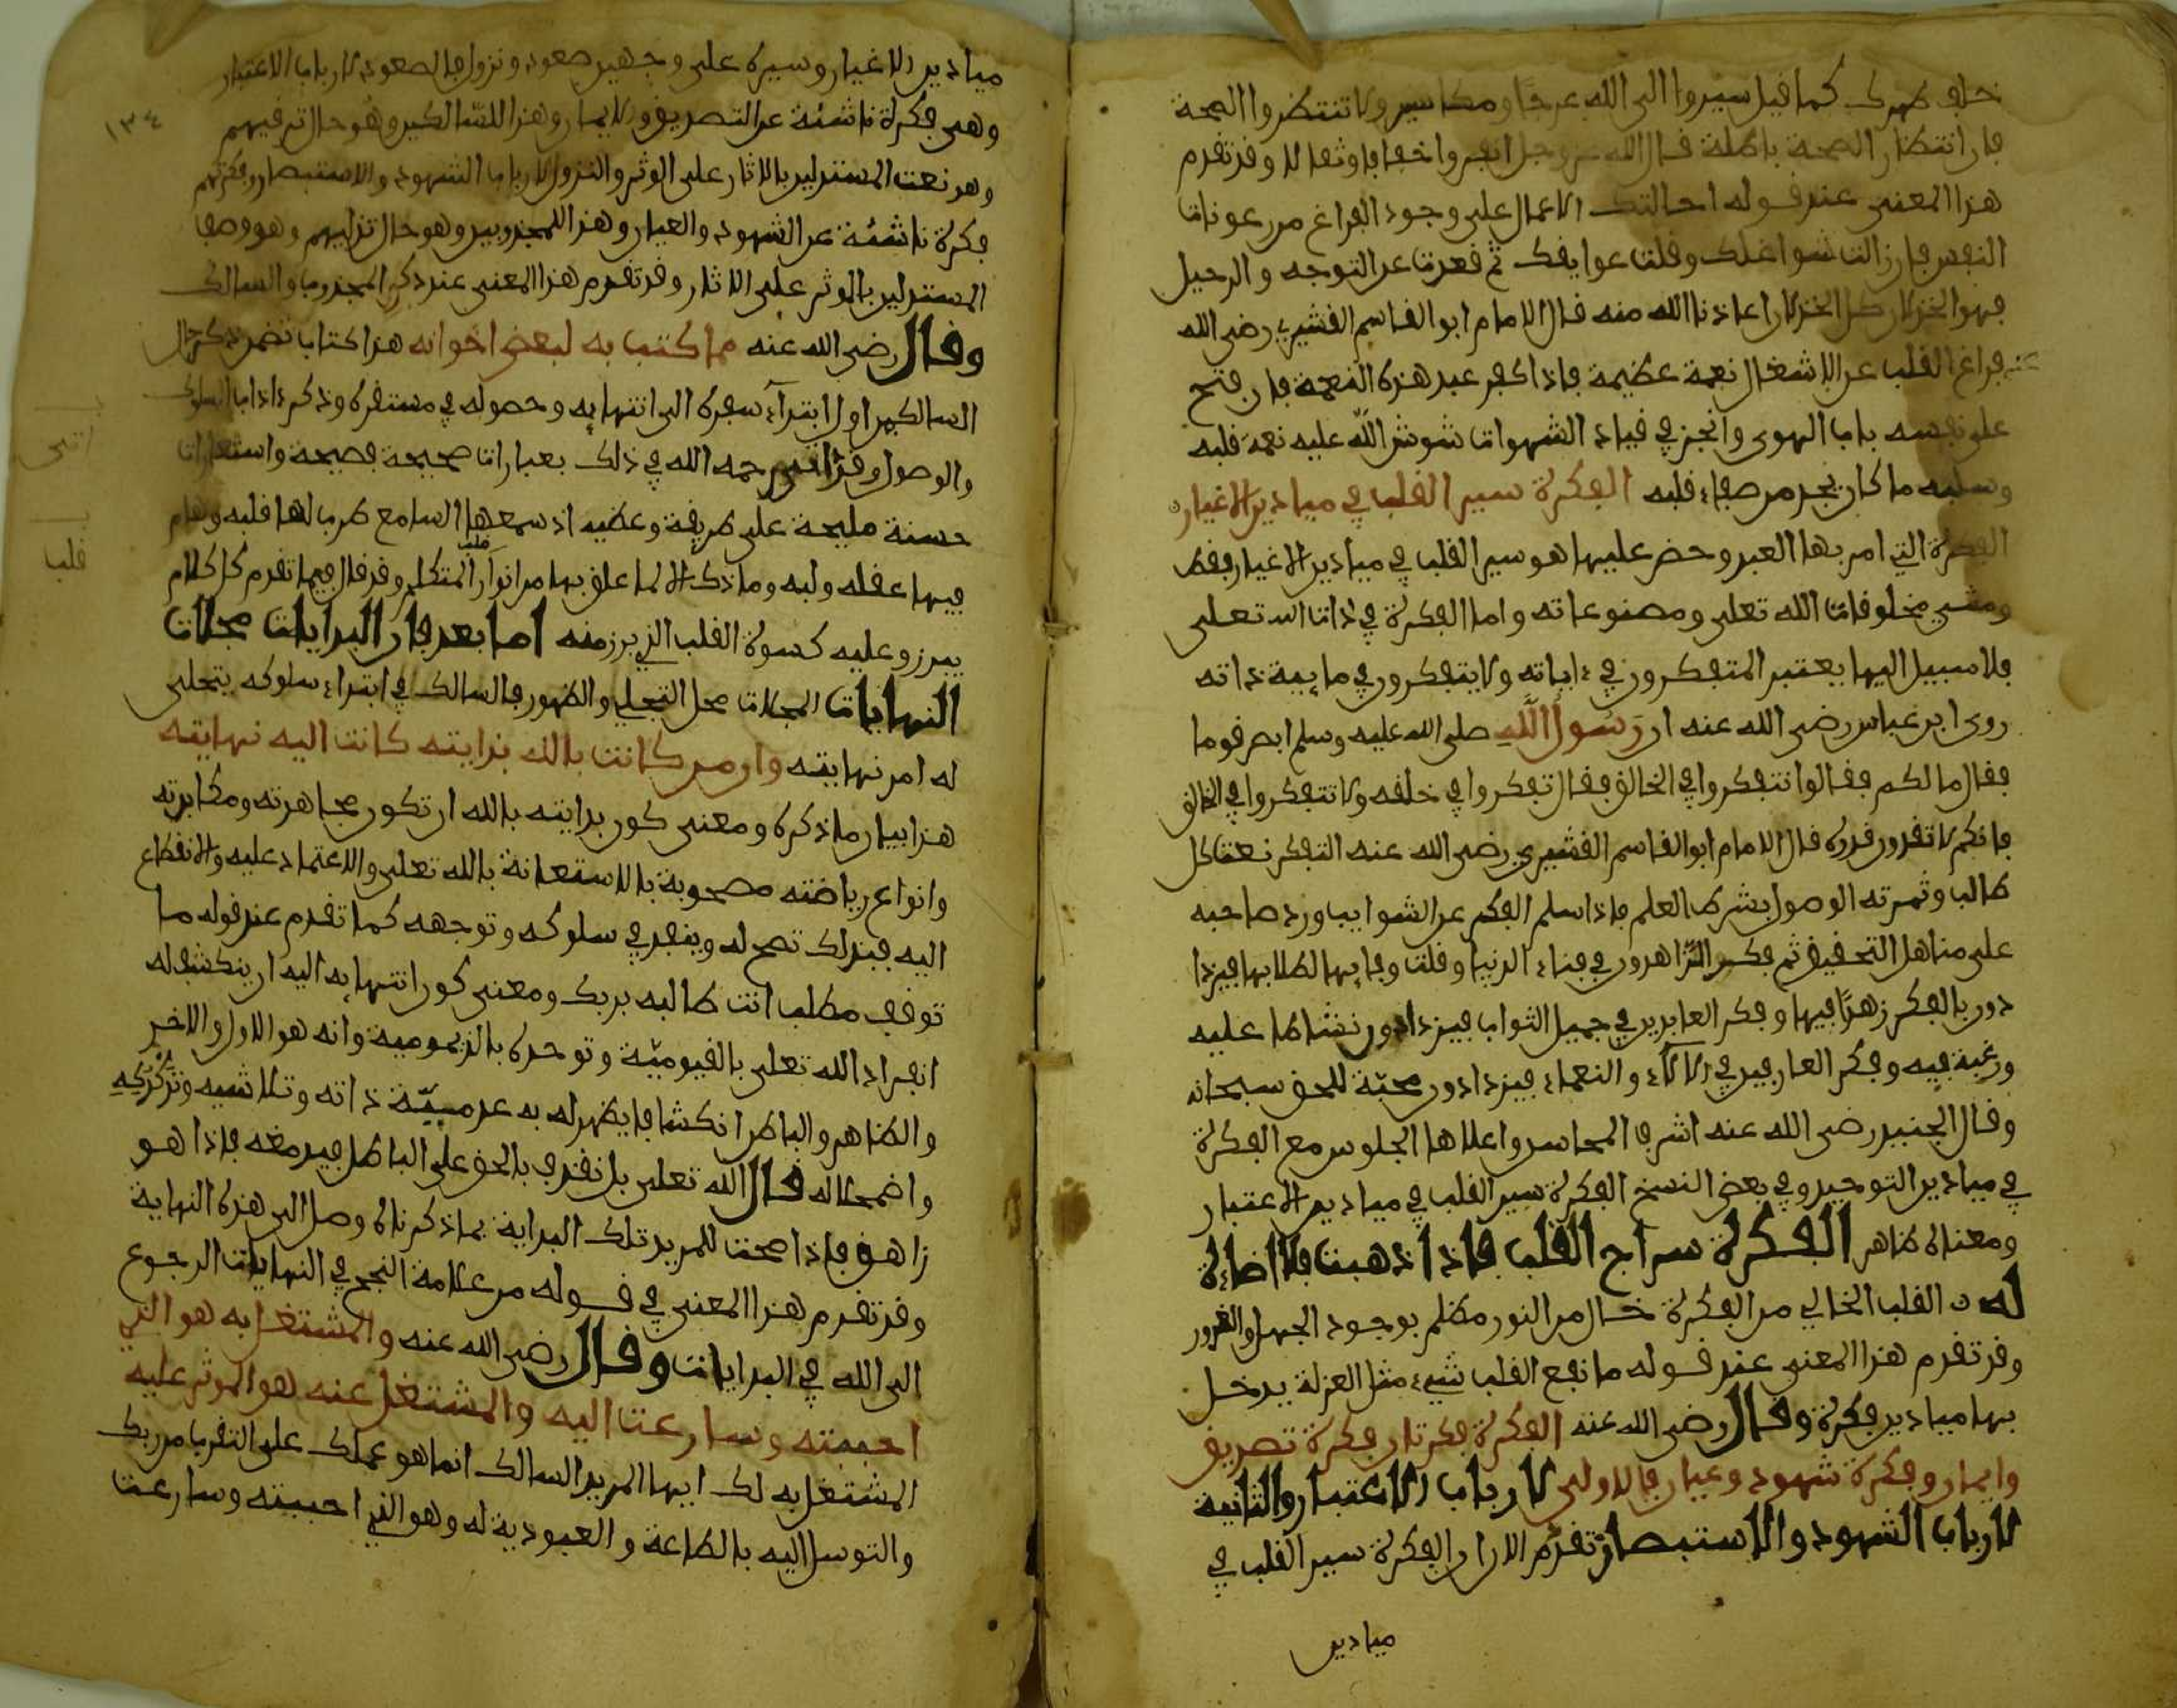 خلف ظهرك كما قيل سيروا الى الله عرجا ومكاسير ولا تنتظروا الصحة
فان انتظار الصحة بطالة قال الله عز وجل انفروا خفافا وثقالا وقد تقدم
هذا المعنى عند قوله احالتك الاعمال على وجود الفراغ من رعونات
النفس فان زالت شواغلك وقلت عوايقك ثم قعدت عن التوجه والرحيل
فهو الخذلان كل الخذلان اعاذنا الله منه قال الامام ابو القاسم القشيري رضى الله
عنه فراغ القلب عن الاشغال نعمة عظيمة فاذا كفر عبد هذه النعمة فان فتح
على نفسه باب الهوى وانجر في قياد الشهوات شوش الله عليه نعمة قلبه
وسلبه ما كان يجد من صفاء قلبه الفكرة سير القلب في ميادين الاغيار
الفكرة التي امر بها العبد وحض عليها هو سير القلب في ميادين الاغيار فقط
ومشي مخلوقات الله تعلى ومصنوعاته واما الفكرة في ذات الله تعلى
فلا سبيل اليها يعتبر المتفكرون في ءاياته ولا يتفكرون في ماهية ذاته
روى ابن عباس رضى الله عنه ان رسول الله صلى الله عليه وسلم ابصر قوما
فقال ما لكم فقالوا نتفكر في الخالق فقال تفكروا في خلقه ولا تتفكروا في الخالق
فانكم لا تقدرون قدره قال الامام ابو القاسم القشيري رضى الله عنه التفكر نعت كل
طالب وثمرته الوصول بشرط العلم فاذا سلم الفكر عن الشوايب اورد صاحبه
على مناهل التحقيق ثم فكر الزاهدون في فناء الدنيا وقلت وفايها لطلابها فيزدا
دون بالفكر زهدا فيها وفكر العابدين في جميل الثواب فيزدادون نشاطا عليه
ورغبة فيه وفكر العارفين في الالاء والنعماء فيزدادون محبة للحق سبحانه
وقال الجنيد رضى الله عنه اشرف المجالس واعلاها الجلوس مع الفكرة
في ميادين التوحيد وفي بعض النسخ الفكرة سير القلب في ميادين الاعتبار
ومعناه ظاهر الفكرة سراج القلب فاذا ذهبت فلا اضاءة
له القلب الخالي من الفكرة خال من النور مظلم بوجود الجهل والغرور
وقد تقدم هذا المعنى عند قوله ما نفع القلب شيء مثل العزلة يدخل
بها ميادين فكرة وقال رضى الله عنه الفكرة فكرتان فكرة تصديق
وايمان وفكرة شهود وعيان فالاولى لارباب الاعتبار والثانية
لارباب الشهود والاستبصار تقدم الان ان الفكرة سير القلب في
ميادين
١٣٤
ميادين الاغيار وسيره على وجهين صعود ونزول فالصعود لارباب الاعتبار
وهى فكرة ناشئة عن التصديق والايمان وهذا للسالكين وهو حال ترقيهم
وهو نعت المستدلين بالاثار على الموثر والنزول لارباب الشهود والاستبصار وفكرتهم
فكرة ناشئة عن الشهود والعيان وهذا للمجذوبين وهو حال تدليهم وهو وصف
المستدلين بالموثر على الاثار وقد تقدم هذا المعنى عند ذكر المجذوب والسالك
وقال رضى الله عنه مما كتب به لبعض اخوانه هذا كتاب تضمن ذكر حال
السالكين من اول ابتداء سفره الى انتهايه وحصوله في مستقره وذكر ءاداب السلوك
والوصول وقد اتى رحمه الله في ذلك بعبارات صحيحة فصيحة واستعارات
حسنة مليحة على طريقة وعظيه اذ سمعها السامع طرب لها قلبه وهام
فيها عقله ولبه وما ذاك الا لما علق بها من انوار قلب المتكلم وقد قال فيما تقدم كل كلام
يبرز وعليه كسوة القلب الذي برز منه اما بعد فان البدايات مجلات
النهايات المجلات محل التجلي والظهور فالسالك في ابتداء سلوكه يتجلى
له امر نهايته وان من كانت بالله بدايته كانت اليه نهايته
هذا بيان ما ذكره ومعنى كون بدايته بالله ان تكون مجاهدته ومكابدته
وانواع رياضته مصحوبة بالاستعانة بالله تعلى والاعتماد عليه والانقطاع
اليه فبذلك تصح له وينفذ في سلوكه وتوجهه كما تقدم عند قوله ما
توقف مطلب انت طالبه بربك ومعنى كون انتهايه اليه ان ينكشف له
انفراد الله تعلى بالقيومية وتوحده بالديمومية وانه هو الاول والاخر
والظاهر والباطن انكشافا يظهر له به عدمية ذاته وتلاشيه وتدكدكه
واضمحلاله قال الله تعلى بل نقذف بالحق على الباطل فيدمغه فاذا هو
زاهق فاذا صحت للمريد تلك البداية بما ذكرناه وصل الى هذه النهاية
وقد تقدم هذا المعنى في قوله من علامة النجح في النهايات الرجوع
الى الله في البدايات وقال رضى الله عنه والمشتغل به هو الذي
احببته وسارعت اليه والمشتغل عنه هو الموثر عليه
المشتغل به لك ايها المريد السالك انما هو عملك على التقرب من ربك
والتوسل اليه بالطاعة والعبودية له وهو الذي احببته وسارعت
انتهى
قلب